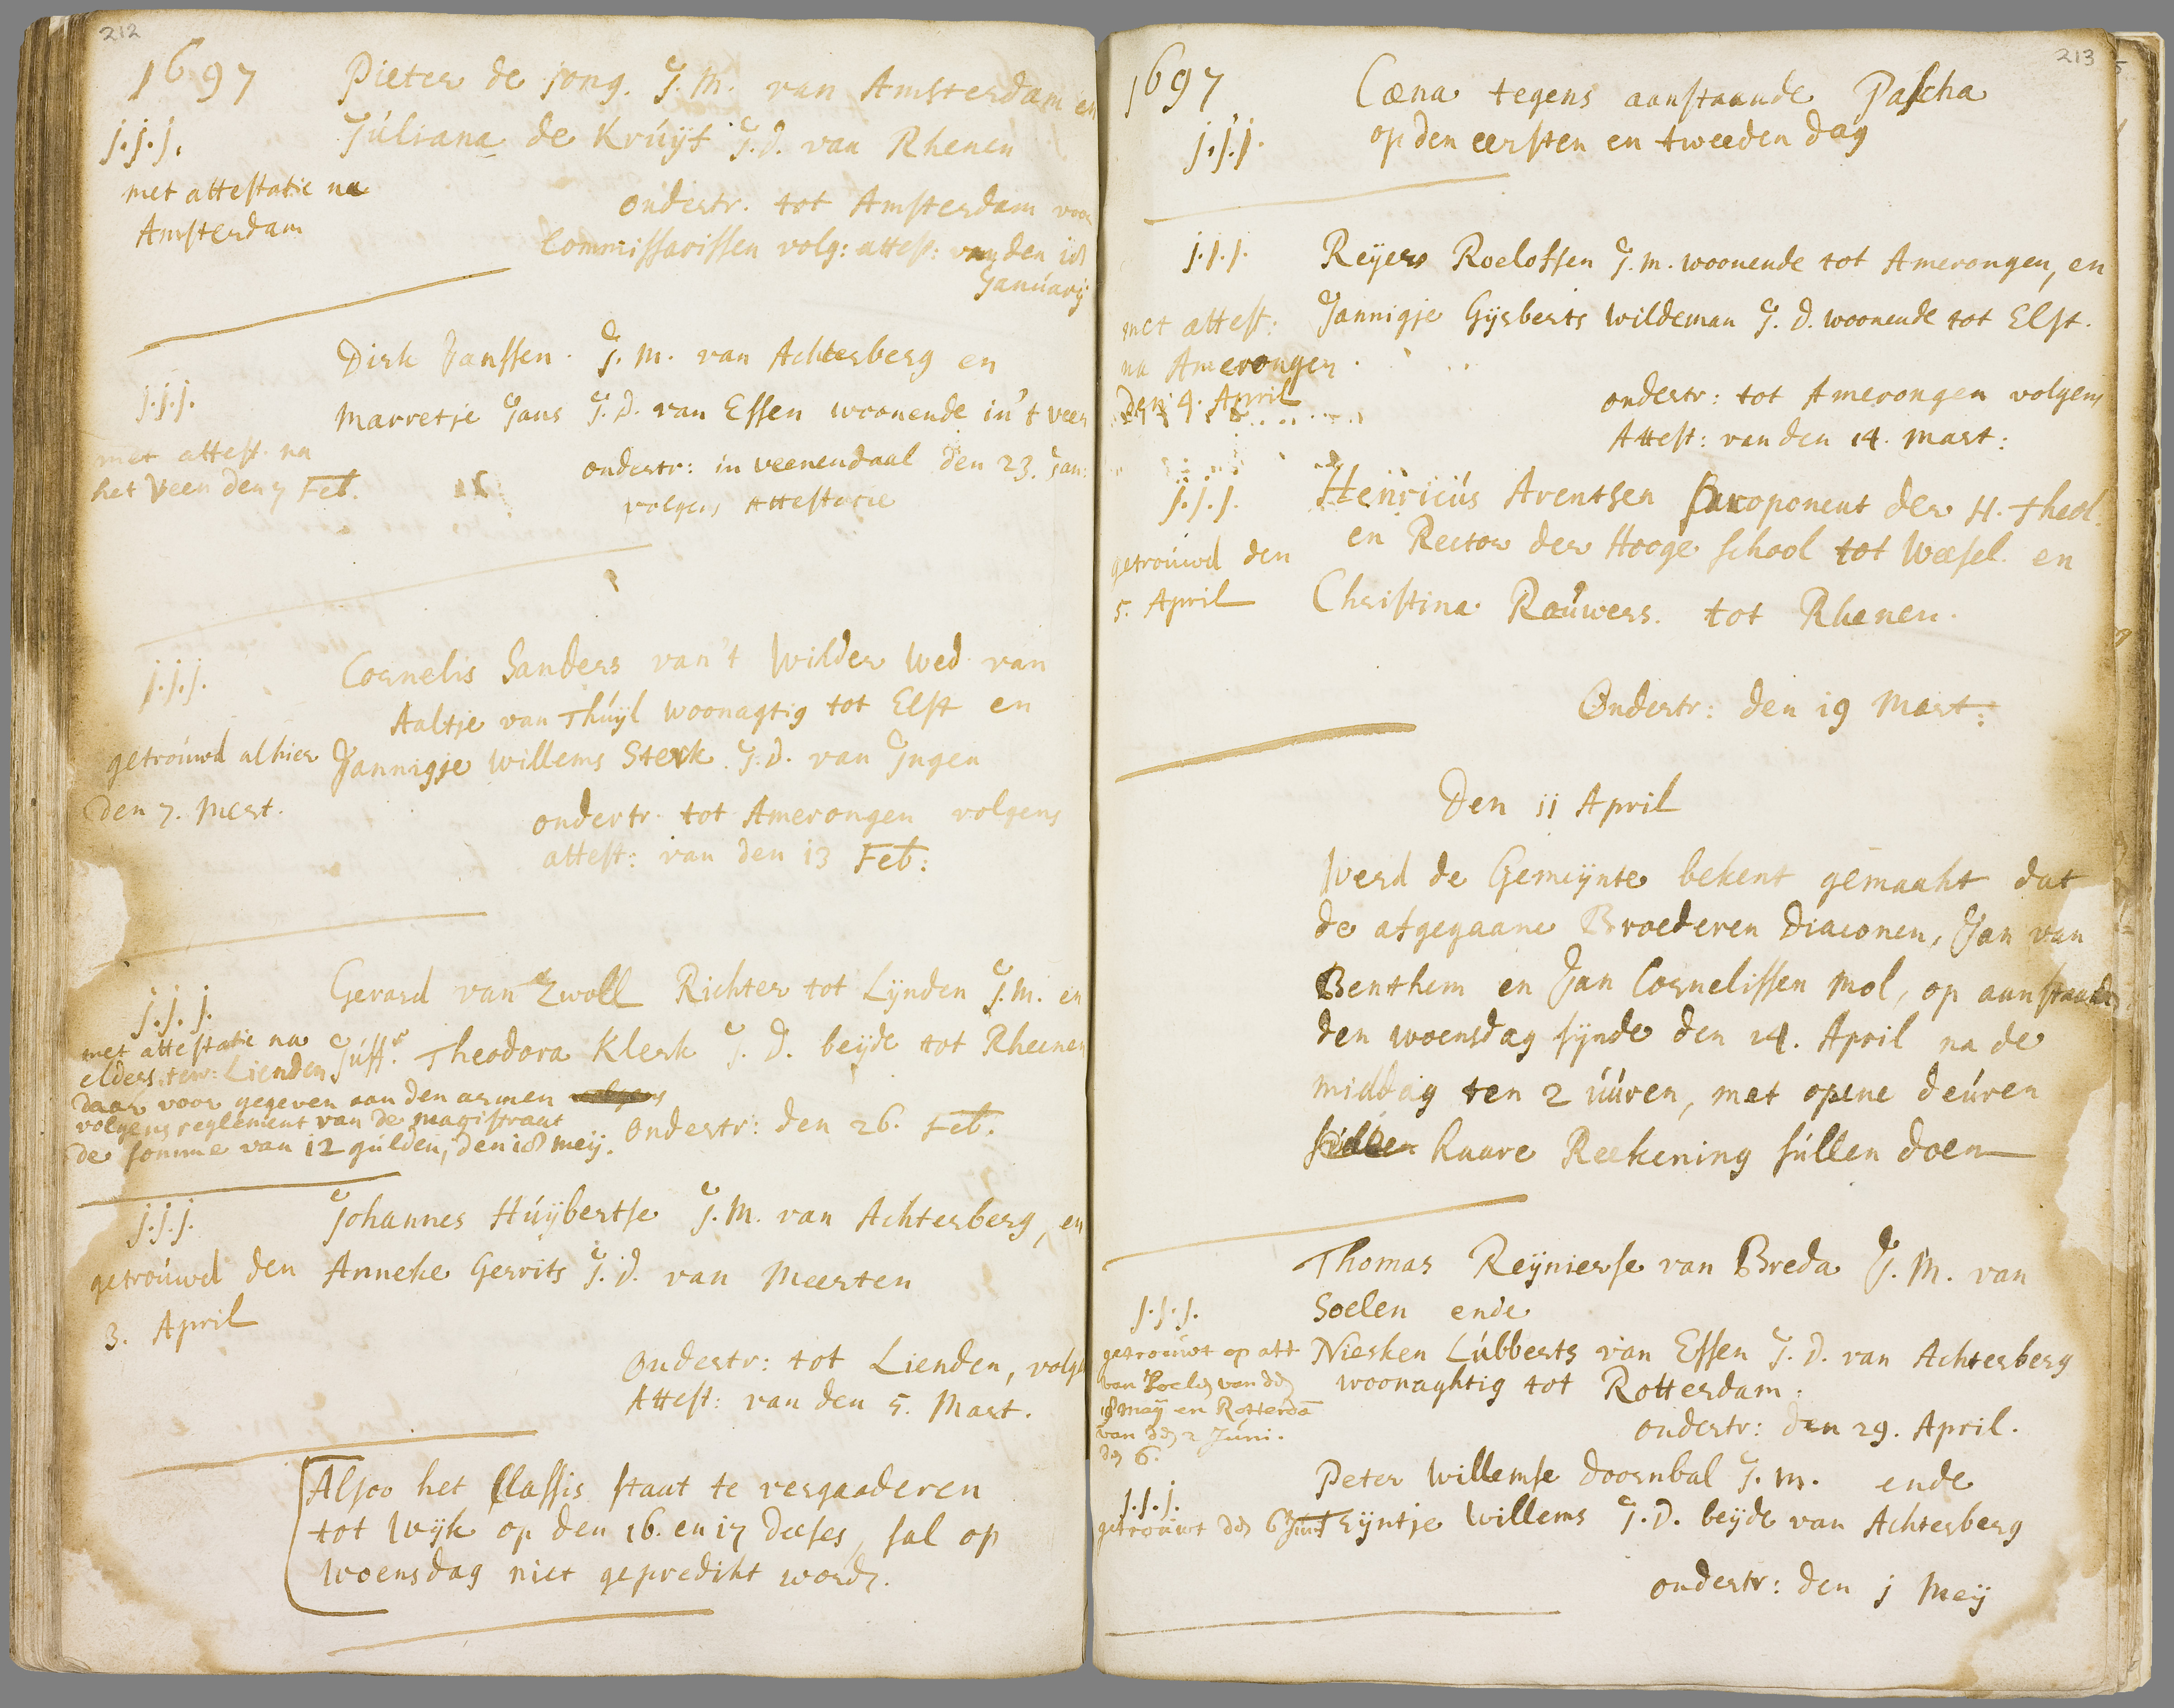 212
1697
Pieter de Jong. J.M. van Amsterdam en
Júliana de Krúijf J.D. van Rhenen
j.j.j.
met attestatie na
Amsterdam
ondertr. tot Amsterdam voor
Commissarissen volg: attest: van den 18
Janúarij
Dirk Janssen. J.M. van Achterberg en
j.j.j.
Marretje Jans J.D. van Essen woonende in't veen
met attest. na
het Veen den 7 Feb.
ondertr: in veenendaal den 23. Jan:
volgens Attestatie
Cornelis Sanders van't Wilder Wed van
j.j.j.
Aaltje van Thúijl woonagtig tot Elst en
getroúwd alhier
den 7. Mert.
Jannigje willems Sterk J.D. van Ingen
ondertr. tot Amerongen volgens
attest: van den 13 Feb:
Gerard van Zwoll Richter tot Lijnden J.M. en
j.j.j.
Júffr. Theodora Klerk J.D. beijde tot Rheenen
met attestatie na
elders, tew: Lienden
daar voor gegeven aan den armen
volgens reglement van de magistraat
de somme van 12 gúlden, den 18 meij.
ondertr: den 26. Feb.
Johannes Húijbertse J.M. van Achterberg, en
j.j.j.
Anneke Gerrits J.D. van Meerten
getroúwd den
3. April
Ondertr: tot Lienden, volg
Attest: van den 5. Mart.
Alsoo het Classis staat te vergaaderen
tot Wijk op den 16. en 17 deeses, sal op
Woensdag niet geprediht word.
213
1697
Cæna tegens aanstaande Pascha
op den eersten en tweeden dag
j.j.j.
j.j.j.
Reijers Roelofsen J.M. woonende tot Amerongen, en
Jannigje Gijsberts Wildeman J.D. woonende tot Elst.
met attest:
na Amerongen
den 4. April
ondertr: tot Amerongen volgens
Attest: van den 14. Mart:
j.j.j.
Henricús Arentsen Proponent der H. Theol.
en Rector der Hooge School tot Weesel en
Christina Roúwers. tot Rhenen.
getroúwd den
5. April
Ondertr: den 19 Mart:
Den 11 April
Werd de Gemeijnte bekent gemaakt dat
de afgegaane Broederen Diaconen, Jan van
Benthem en Jan Cornelissen Mol, op aanstaande
den woensdag sijnde den 14. April na de
middag ten 2 úúren, met opene deúren
súllen haare Reekening súllen doen
Thomas Reijnierse van Breda J.M. van
Soelen ende
j.j.j.
Niesken Lúbberts van Essen J.D. van Achterberg
woonaghtig tot Rotterdam.
getroúwt op att
van Soelen van den
18 meij en Rotterda
van den 2 Júni.
den 6.
ondertr: den 29. April.
Peter Willemse Doornbal J.M. ende
j.j.j.
Trijntje Willems J.D. beijde van Achterberg
getroúwt den 6 Júni
ondertr: den j Meij